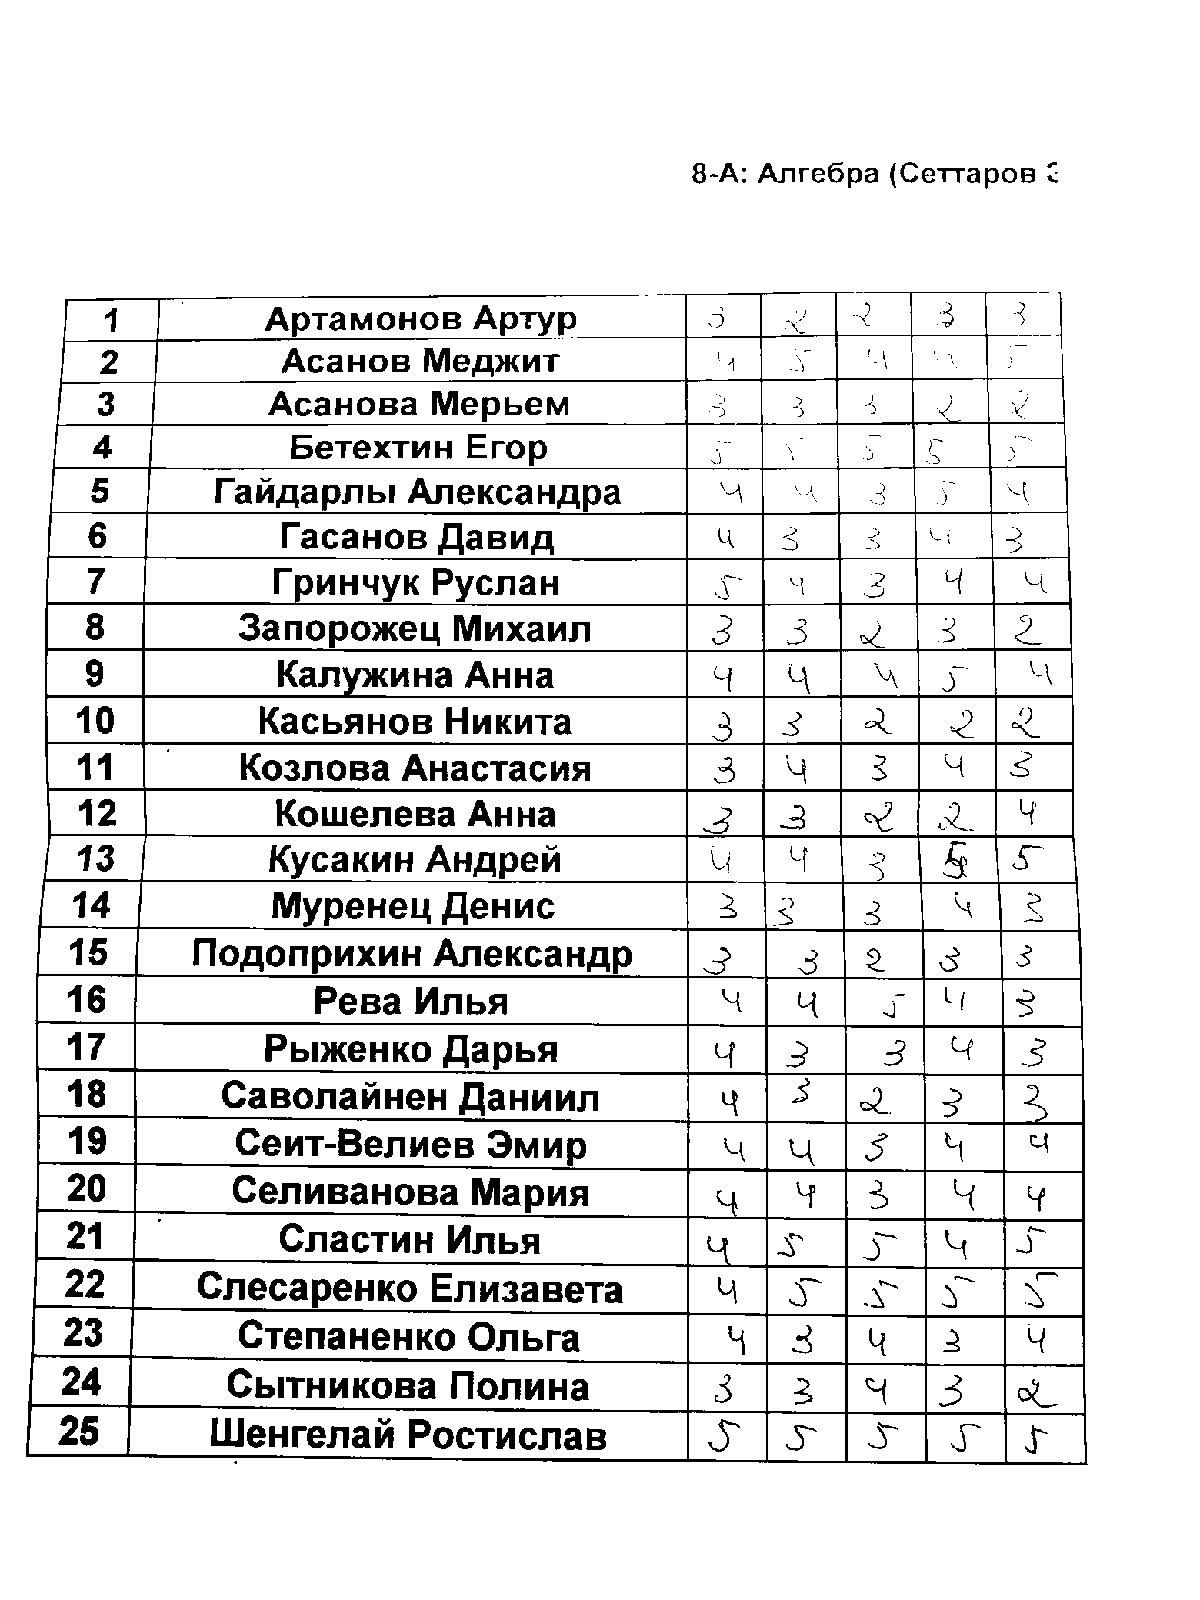 8-А: Алгебра (Сеттаров
1 Артамонов Артур 3 2 2 3 3
2 Асанов Меджит 4 5 4 4 5
3 Асанова Мерьем 3 3 3 2 2
4 Бетехтин Егор 5 5 5 5 5
5 Гайдарлы Александра 4 4 3 5 4
6 Гасанов Давид 4 3 3 4 3
7 Гринчук Руслан 5 4 3 4 4
8 Запорожец Михаил 3 3 2 3 2
9 Калужина Анна 4 4 4 5 4
10 Касьянов Никита 3 3 2 2 2
11 Козлова Анастасия 3 4 3 4 3
12 Кошелева Анна 3 3 2 2 4
13 Кусакин Андрей 4 4 3 5 5
14 Муренец Денис 3 3 3 4 3
15 Подоприхин Александр 3 3 2 3 3
16 Рева Илья 4 4 5 4 3
17 Рыженко Дарья 4 3 3 4 3
18 Саволайнен Даниил 4 3 2 3 3
19 Сеит-Велиев Эмир 4 4 3 4 4
20 Селиванова Мария 4 4 3 4 4
21 Сластин Илья 4 5 5 4 5
22 Слесаренко Елизавета 4 5 5 5 5
23 Степаненко Ольга 4 3 4 3 4
24 Сытникова Полина 3 3 4 3 2
25 Шенгелай Ростислав 5 5 5 5 5